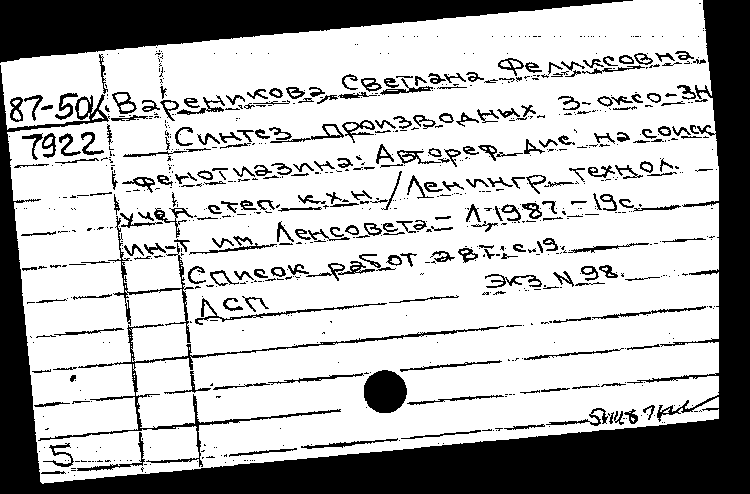 87-50К. Вареникова, Светлана Феликсовна.
7922 Синтез производных 3-оксо-3Н
фенотиазина: Автореф. дис. на соиск.
учен. степ. к.х.н. / Ленингр. технол.
ин-т им. Ленсовета. - Л., 1987. - 19с.
Список работ авт.: с.19.
ДСП Экз N 98.
5